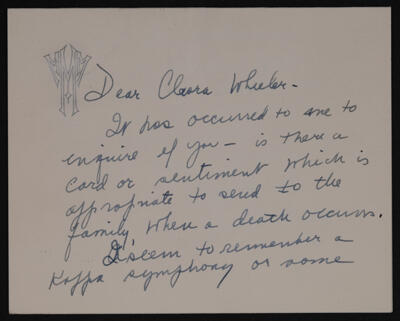 Dear Cleora Wheeler -
It has occurred to me to
enquire of you - is there a
card or sentiment which is
appropriate to send to the
family when a death occurs.
I seem to remember a
Kappa symphony or some